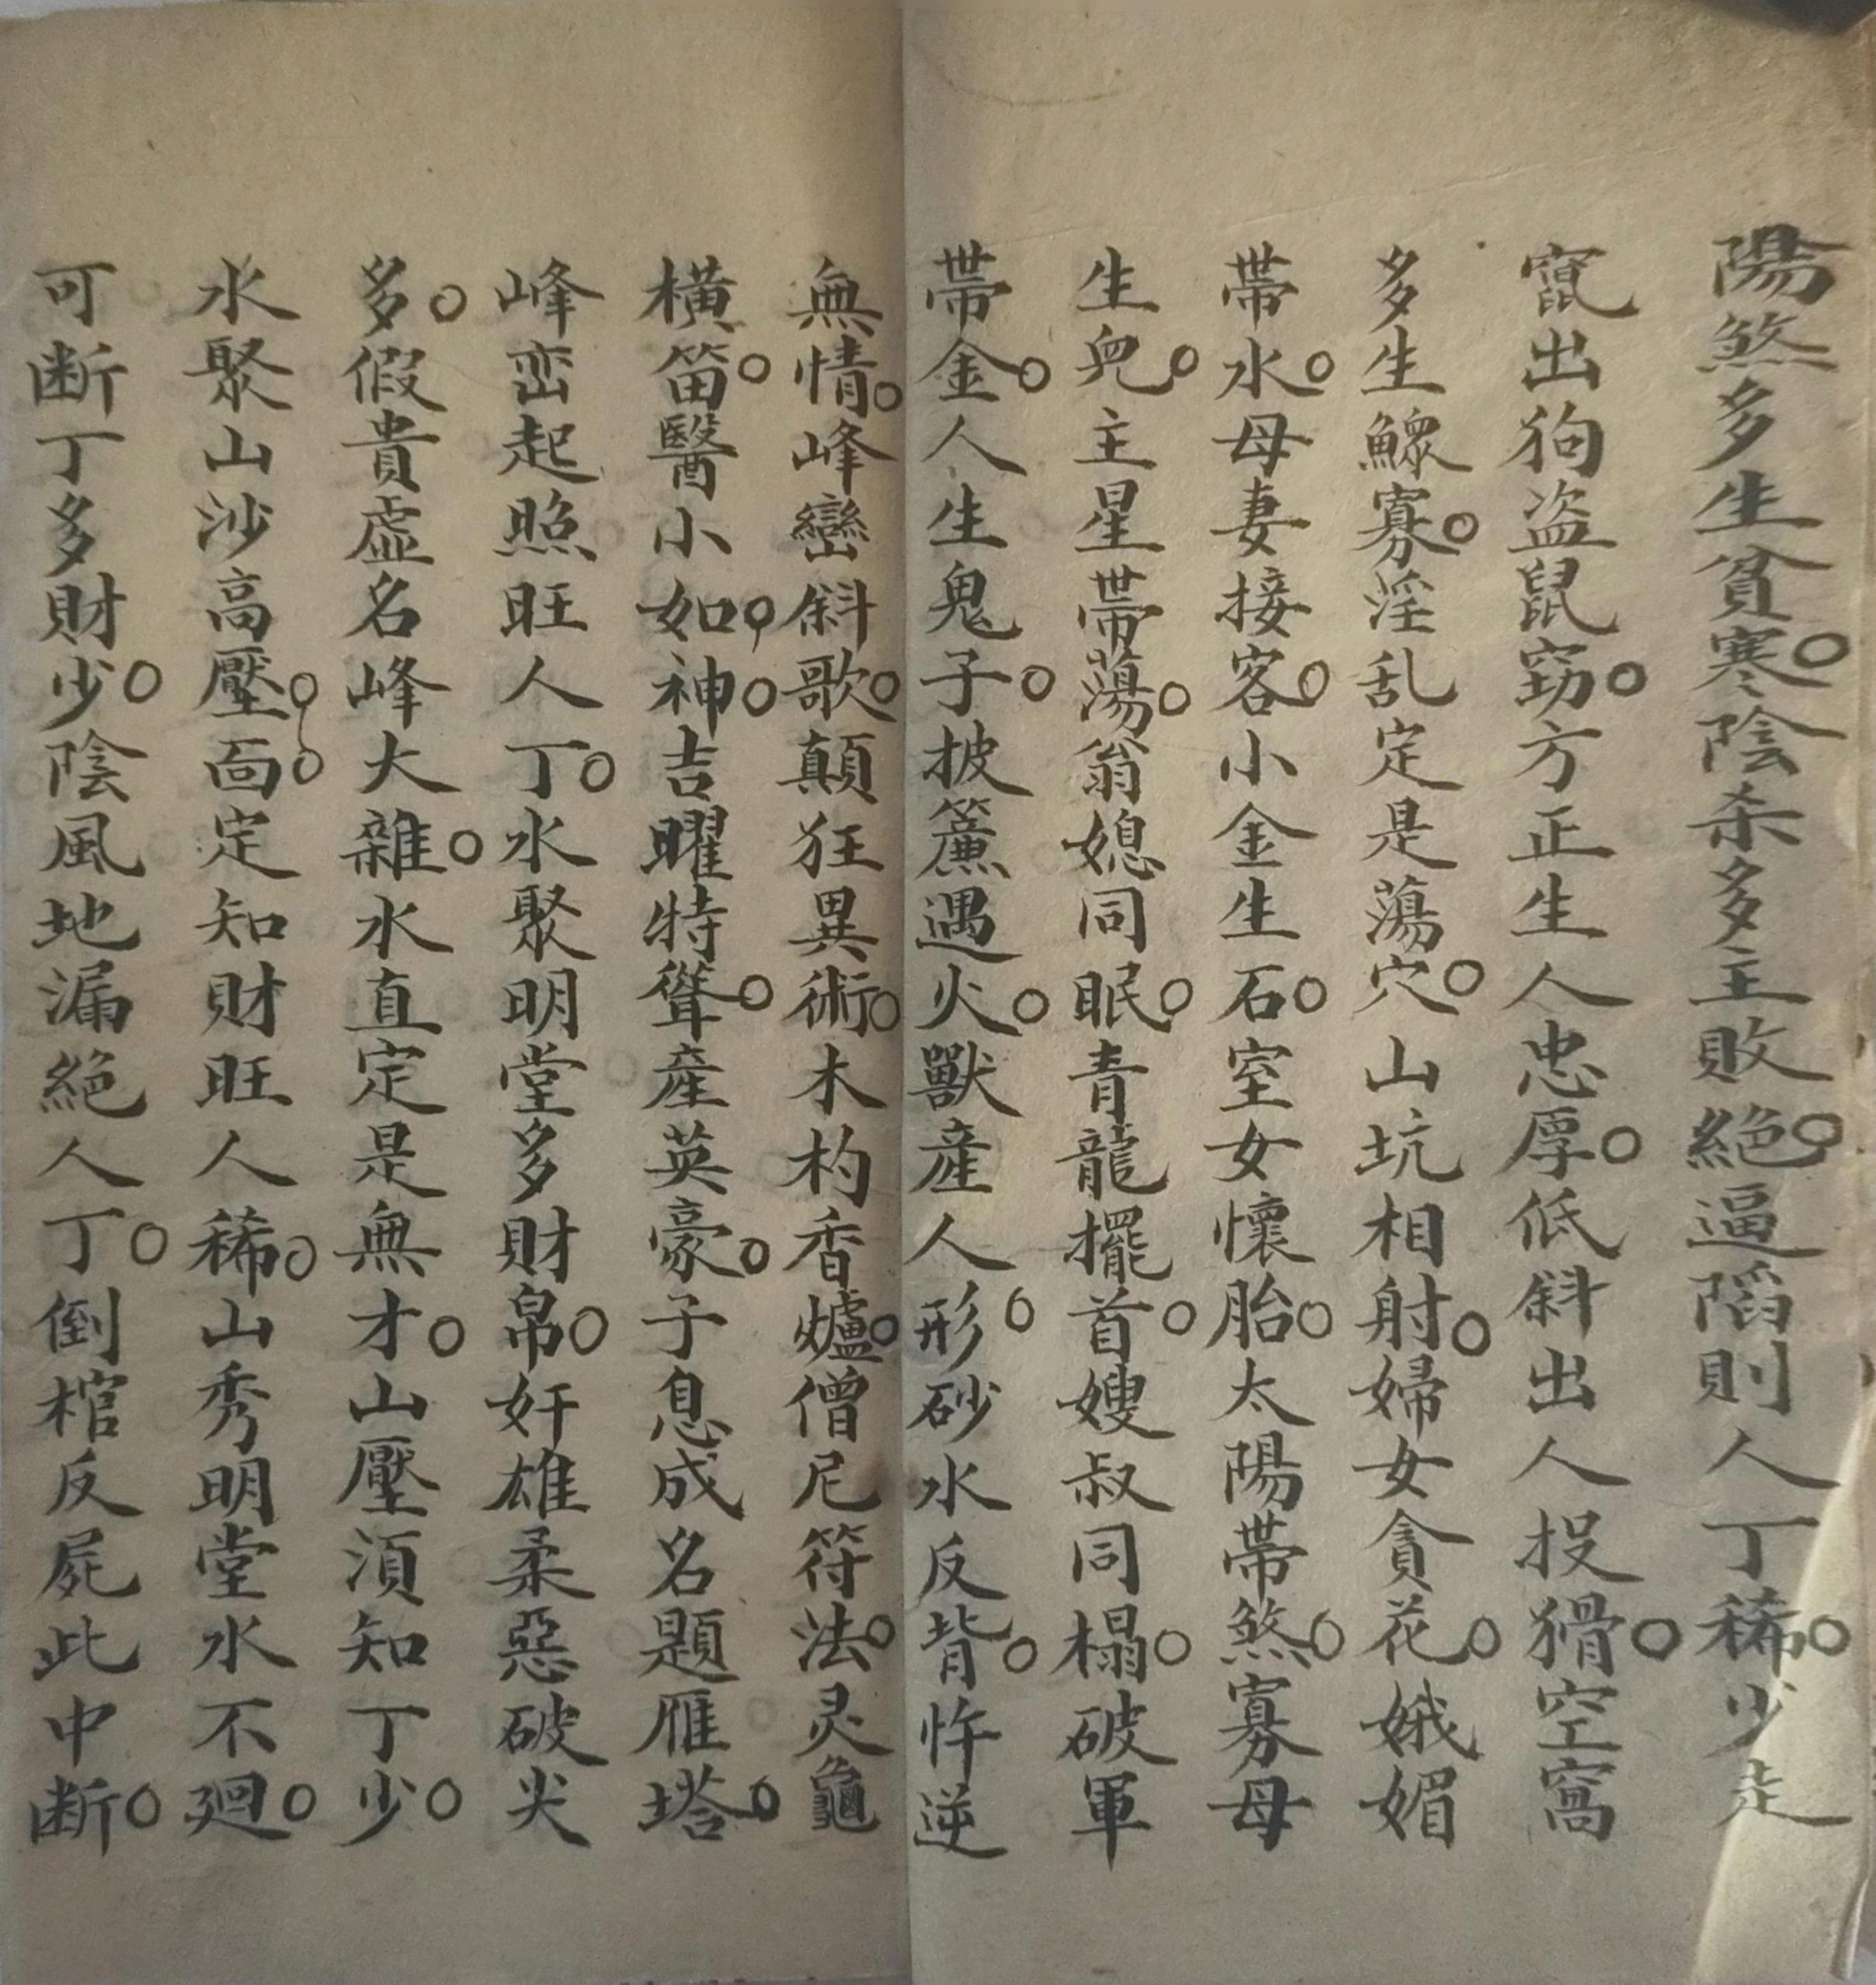 陽煞多生貧寒○陰杀多主敗絕○逼陷則人丁稀○少走
竄出狗盗鼠窃○方正生人忠厚○低斜出人投猾○空窩
多生鰥寡○淫乱定是蕩穴○山坑相射○婦女貪花○娥媚
帯水○母妻接客○小金生石○室女懷胎○太陽帯煞○寡母
生皃○主星帯蕩○翁媳同眠○青龍擺首○嫂叔同榻○破軍
帯金○人生鬼子○披簾遇火○獸産人形○砂水反背○忤逆
無情○峰巒斜歌○顛狂異術○木杓香爐○僧尼符法○灵龜
橫笛○醫小如○神○吉曜特聳○産英豪○子息成名題雁塔○
峰峦起照旺人丁○水聚明堂多財帛○奸雄柔惡破尖
多○假貴虛名峰大雜○水直定是無才○山壓湏知丁少○
水聚山沙高壓○面○定知財旺人稀○山秀明堂水不廻○
可断丁多財少○陰風地漏絕人丁○倒棺反屍此中断○